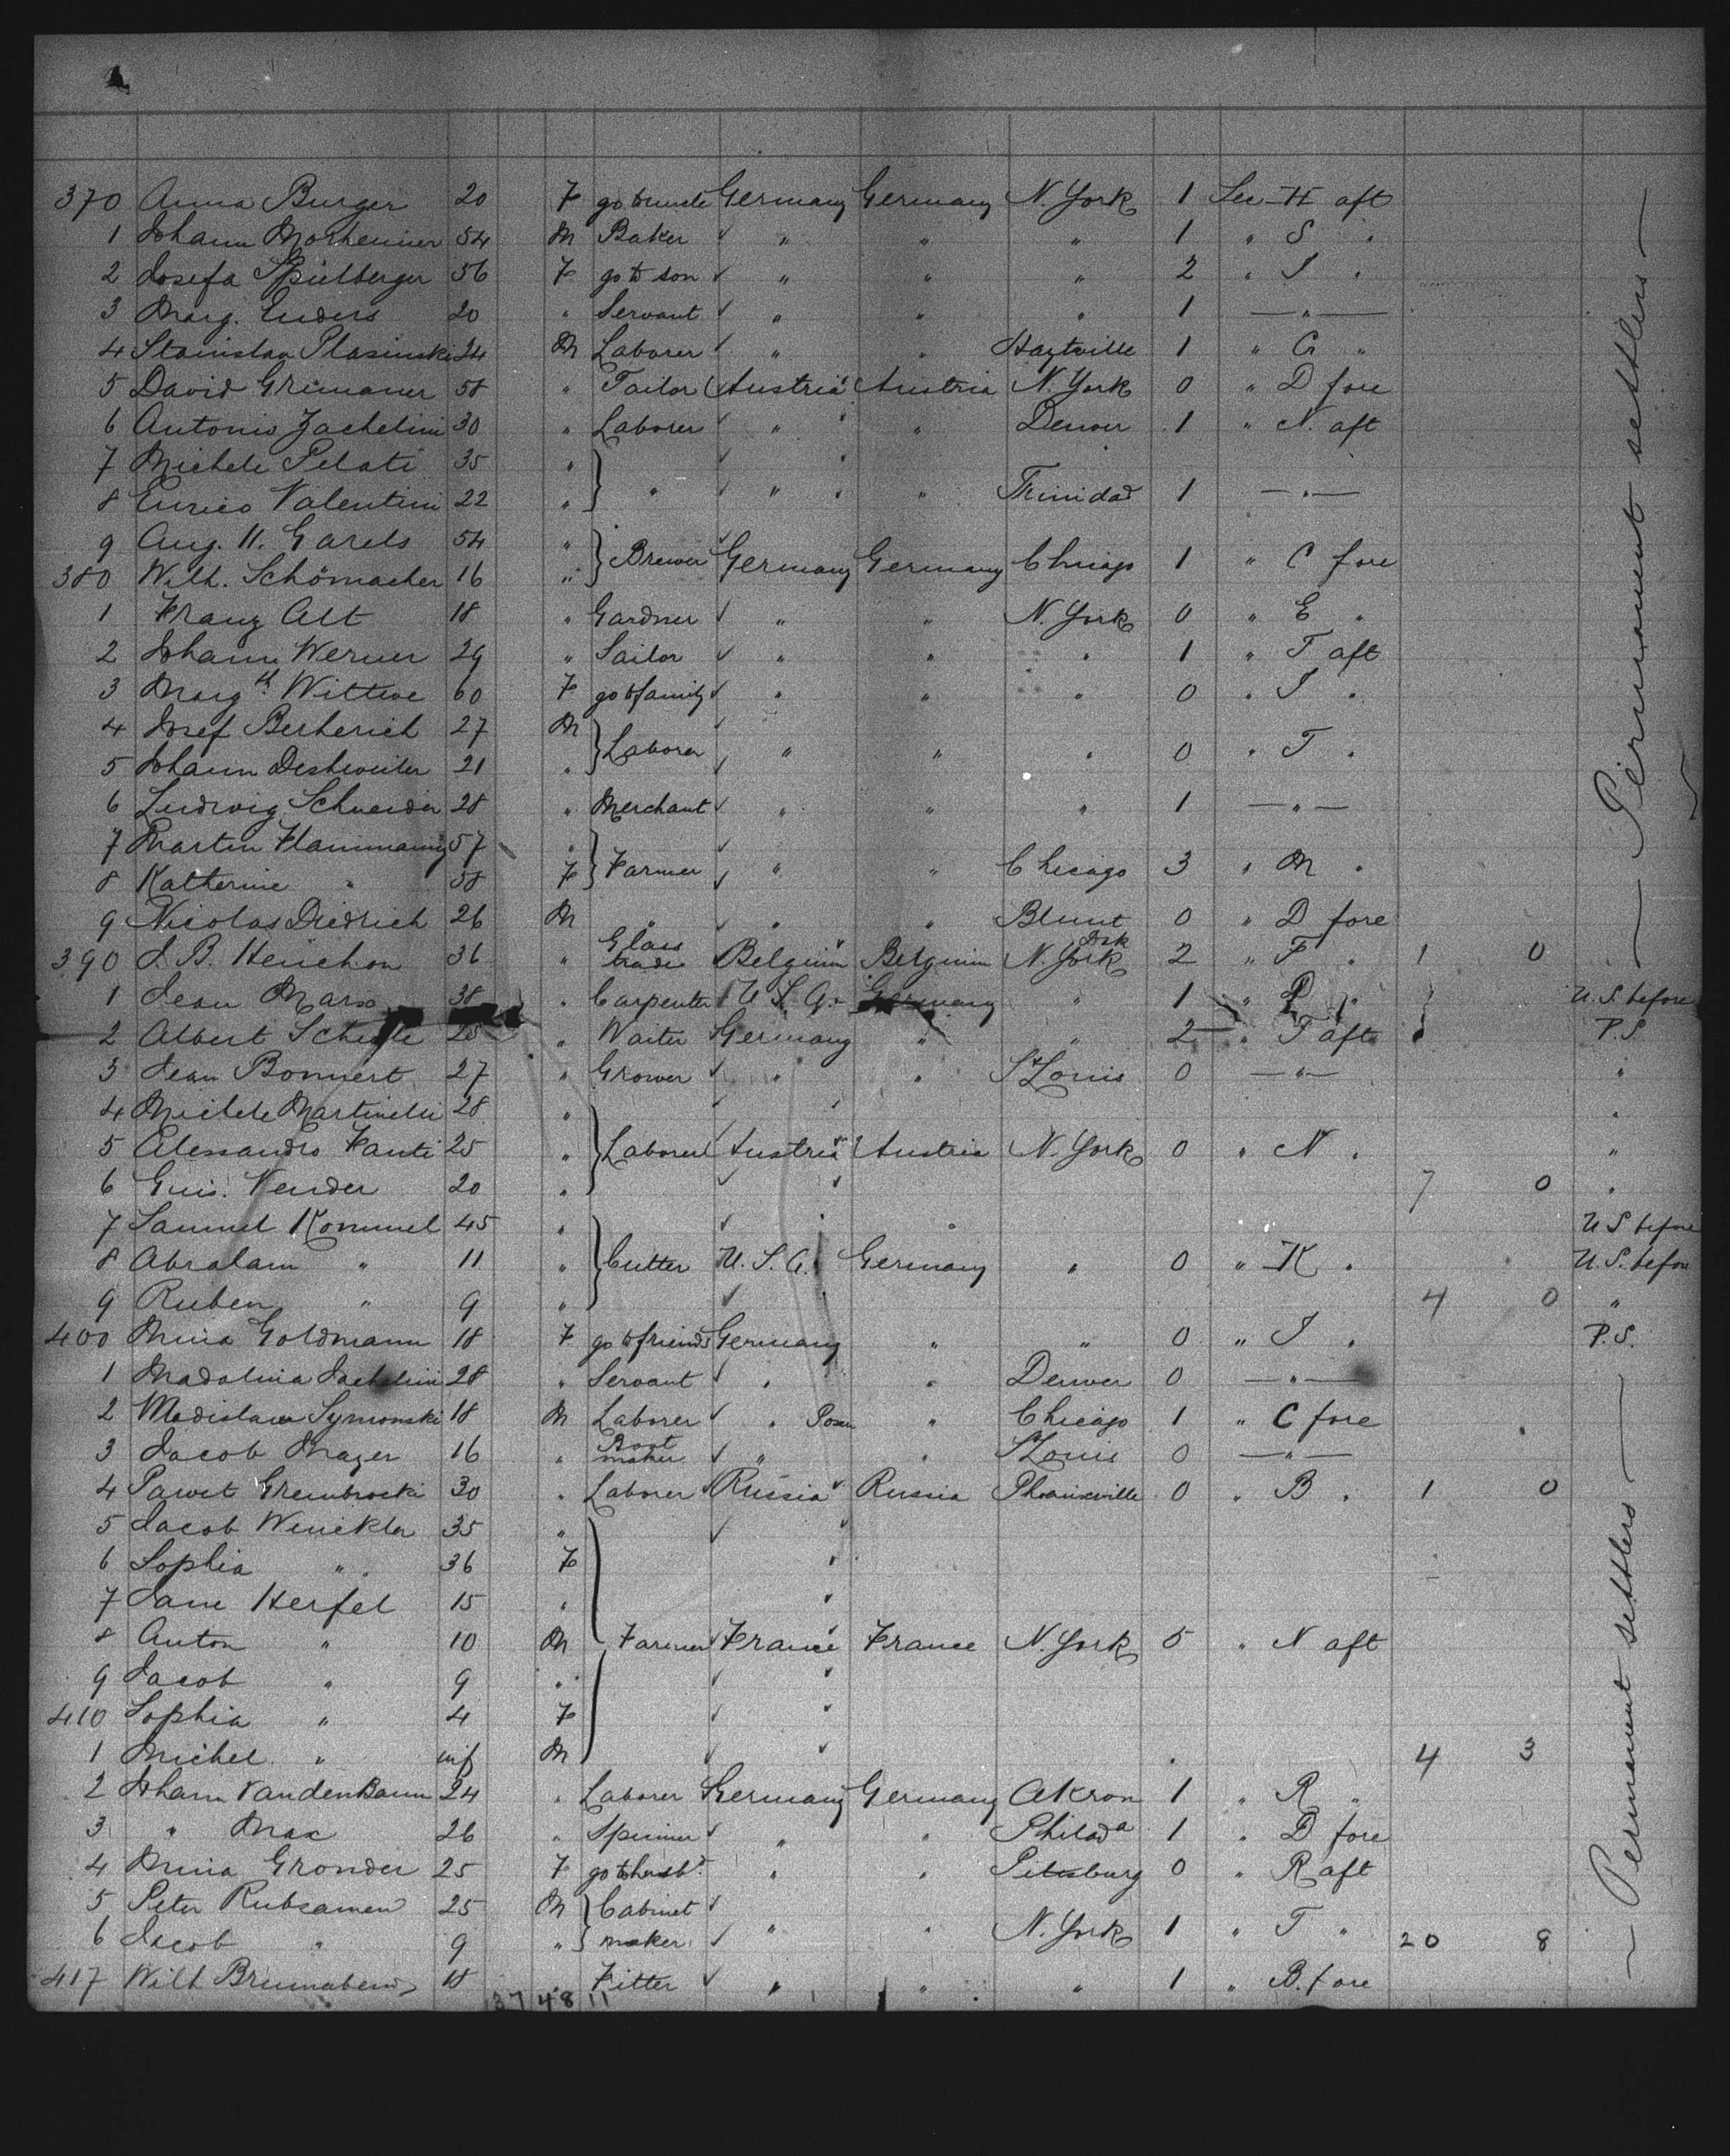 370 Anna Burger 20 F go to uncle Germany Germany N. York 1 Sec H aft
1 Johann Morheimer 54 M Baker " " " 1 " S "
2 Josefa Spielberger 56 F go to son " " " 2 " I "
3 Marg. Enders 20 " Servant " " " 1 — " —
4 Stanislav Plasinski 24 M Laborer " " 1 " G "
5 David Grünauer 58 " Tailor Austria Austria N. York 0 " D fore
6 Antonio Jachelini 30 " Laborer " " Denver 1 " N. aft
7 Michele Pelati 35 "
8 Enrico Valentini 22 " " " " Trinidad 1 — " —
9 Aug. H. Garels 54 "
380 Wilh. Schömacher 16 " Brewer Germany Germany Chicago 1 " C fore
1 Franz Alt 18 " Gardner " " N. York 0 " E "
2 Johann Werner 29 " Sailor " " " 1 " T aft
3 Margth. Wittwe 60 F go to family " " " 0 " I "
4 Josef Berherich 27 M
5 Johann Deshweiler 21 " Laborer " " " 0 " T "
6 Ludwig Schneider 28 " Merchant " " " 1 — " —
7 Martin Flammang 57 "
8 Katherine " 58 F Farmer " " Chicago 3 " M "
9 Nicolas Diedrich 26 M " " " Blunt 0 " D fore
390 J. B. Henichon 36 " Glass trade Belgium Belgium N. York 2 " F " 1 0
1 Jean Marx 38 " Carpenter U. S. A. Germany " 1 " " U. S. before
2 Albert 25 " Waiter Germany " " 2 " T aft P. S.
3 Jean Bonnert 27 " Grower " " St Louis 0 — " — "
4 Michele Martinelli 28 " "
5 Alessandro Fanti 25 " Laborer Austria Austria N. York 0 " N " "
6 Guis. Vender 20 " 7 0 "
7 Samuel Kommel 45 " " U S before
8 Abraham " 11 " Cutter U. S. A. Germany " 0 " K " U. S. before
9 Ruben " 9 " 4 0 "
400 Mina Goldmann 18 F go to friends Germany " " 0 " I " P. S.
1 Madalina Jachelini 28 " Servant " " Denver 0 — " —
2 Wladislaw Symonski 18 M Laborer " Posen " Chicago 1 " C fore
3 Jacob Mayer 16 " Boot maker " " St Louis 0 — " —
4 Pawet Grembroski 30 " Laborer Russia Russia Phoenixville 0 " B " 1 0
5 Jacob Winckler 35 "
6 Sophia " 36 F
7 Jane Herfel 15 "
8 Anton " 10 M Farmer France France N. York 5 " N aft
9 Jacob " 9 "
410 Sophia " 4 F
1 Michel " inf M 4 3
2 Johann Vandenbaum 24 " Laborer Germany Germany Akron 1 " R "
3 " Max 26 " Spinner " " Philada 1 " D fore
4 Mina Gronder 25 F go to husbd. " " Pittsburg 0 " R aft
5 Peter Rubsamen 25 M Cabinet
6 Jacob " 9 " maker " " N. York 1 " T " 20 8
417 Wilh Brunnabend 18 " Fitter " " " 1 " B. fore
37 48 11
— Permanent settlers —
— Permanent settlers —